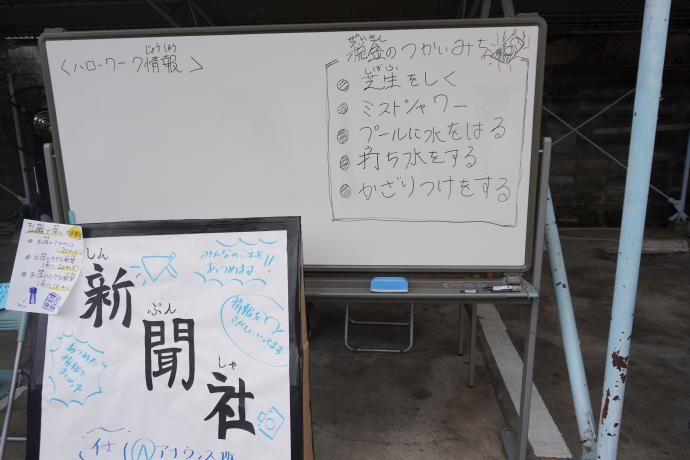 <ハローワーク情報>
じょうほう
税金のつかいみち
ぜいきん
芝生をしく
しばふ
ミストシャワー
プールに水をはる
打ち水をする
かざりつけをする
新聞社
しん
ぶん
しゃ
みんなのこえを
あつめます!!
情報を
さがしにいってます
あつめた
情報を
Ⓐアナウンス